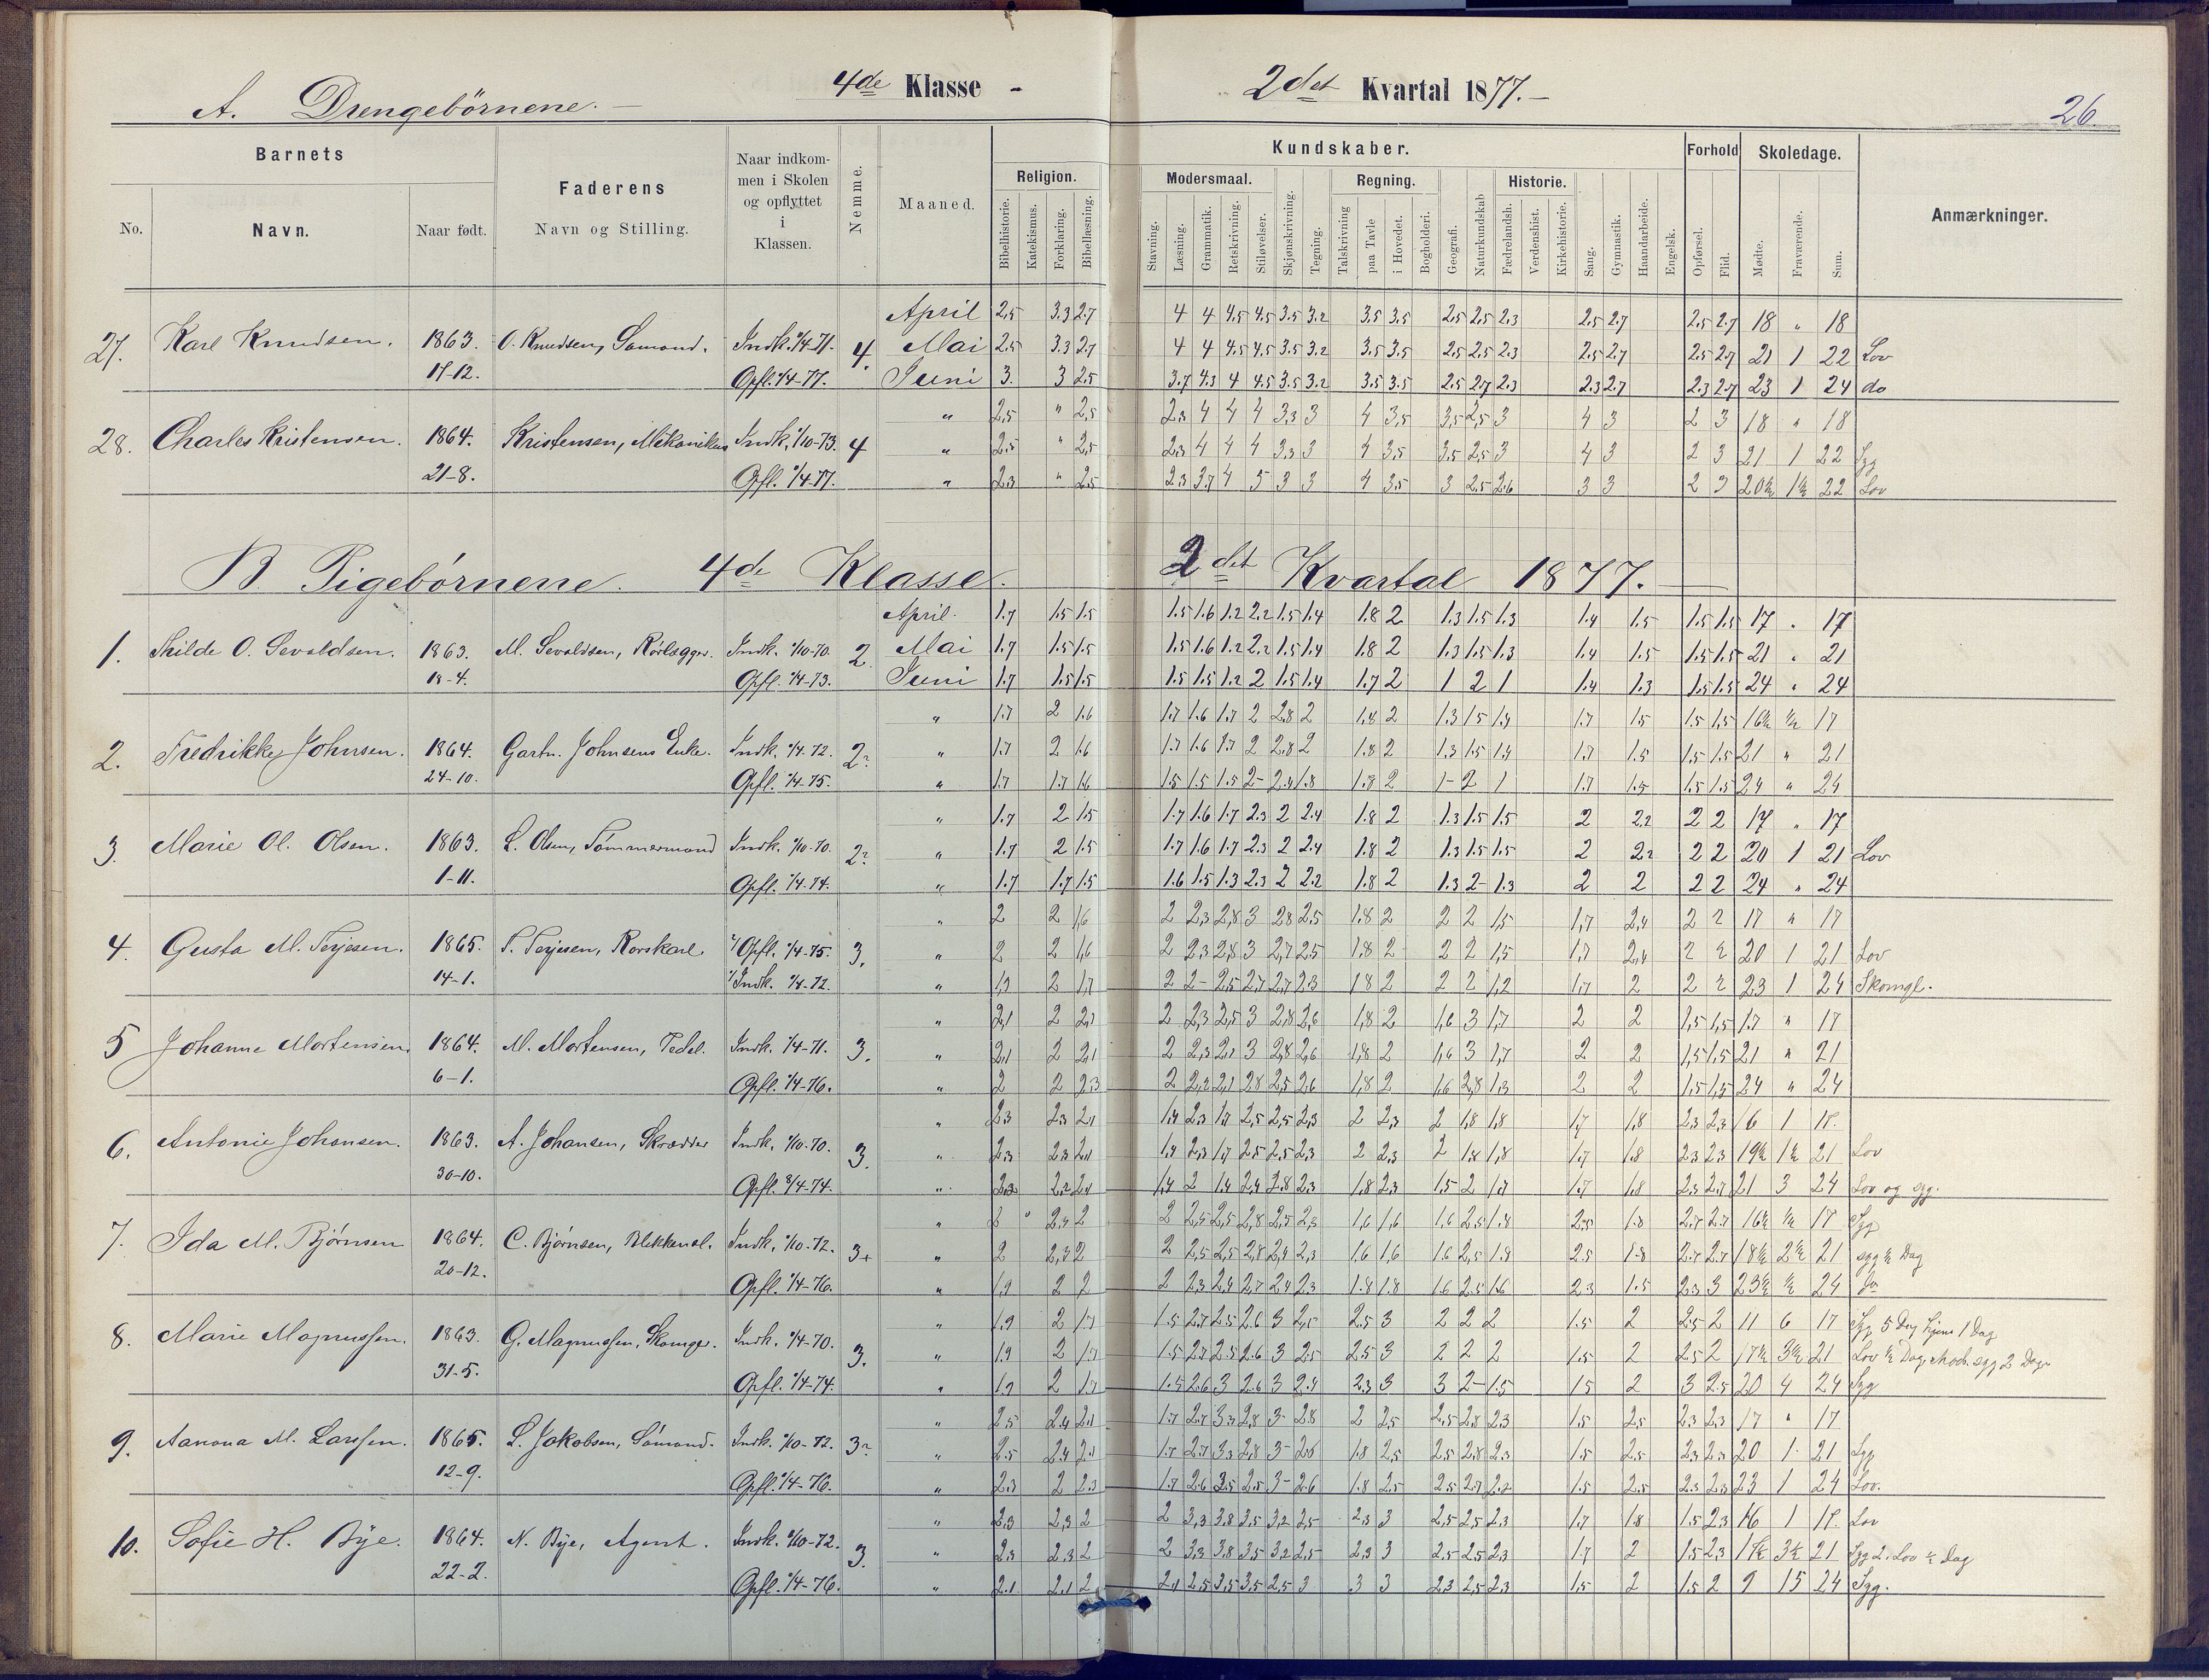 A. Drengebörnene. — 4de Klasse - 2det Kvartal 1877. —
26.
Barnets
No.
Navn.
Naar født.
Faderens
Navn og Stilling.
Naar indkom-
men i Skolen
og opflyttet
i
Klassen.
Nemme.
Maaned.
Kundskaber.
Religion.
Bibelhistorie.
Katekismus.
Forklaring.
Bibellæsning.
Modersmaal.
Stavning.
Læsning.
Grammatik.
Retskrivning.
Stiløvelser.
Skjønskrivning.
Tegning.
Regning.
Talskrivning
paa Tavle
i Hovedet.
Bogholderi.
Geografi.
Naturkundskab
Historie.
Fædrelandsh.
Verdenshist.
Kirkehistorie.
Sang.
Gymnastik.
Haandarbeide.
Engelsk.
Forhold
Opførsel.
Flid.
Skoledage.
Mødte.
Fraværende.
Sum.
Anmærkninger.
April 2,5 3.3 2.7 4 4 4.5 4.5 3.5 3.2 3.5 3.5 2.5 2.5 2.3 2.5 2.7 2.5 2.7 18 " 18
27. Karl Knudsen. 1863. O. Knudsen, Sømand. Indk. 1/4-71. 4. Mai 2.5 3.3 2.7 4 4 4.5 4.5 3.5 3.2 3.5 3.5 2.5 2.5 2.3 2.5 2.7 2.5 2.7 21 1 22 Lov
17-12. Opfl. 1/4-77. Juni 3. 3 2.5 3.7 4.3 4 4.5 3.5 3.2 3.5 3.5 2.5 2.7 2.3 2.3 2.7 2.3 2.7 23 1 24 do
" 2,5 " 2,5 2.3 4 4 4 3,3 3 4 3,5 3,5 2,5 3 4 3 2 3 18 " 18
28. Charles Kristensen. 1864. Kristensen, Mekanikus Indk. 1/10-73. 4 " 2.5 " 2,5 2.3 4 4 4 3.3 3 4 3,5 3.5 2.5 3 4 3 2 3 21 1 22 Syg
21-8. Opfl. 1/4-77. " 2.3 " 2.5 2.3 3.7 4 5 3 3 4 3.5 3 2.5 2.6 3 3 2 3 20½ 1½ 22 Lov
B. Pigebörnene. 4de Klasse. 2det Kvartal 1877. —
April. 1.7 1.5 1.5 1.5 1.6 1.2 2.2 1.5 1.4 1.8 2 1.3 1.5 1.3 1.4 1.5 1.5 1.5 17 " 17
1. Thilde O. Sevaldsen. 1863. M. Sevaldsen, Rörlægger. Indk. 1/10-70. 2. Mai 1.7 1.5 1.5 1.5 1.6 1.2 2.2 1.5 1.4 1.8 2 1.3 1.5 1.3 1.4 1.5 1.5 1.5 21 " 21
18-4. Opfl. 1/4-73. Juni 1.7 1.5 1.5 1.5 1.5 1.2 2 1.5 1.4 1.7 2 1 2 1 1.4 1.3 1.5 1.5 24 " 24
" 1.7 2 1.6 1.7 1.6 1.7 2 2.8 2 1.8 2 1.3 1.5 1.4 1.7 1.5 1.5 1.5 16½ ½ 17
2. Fredrikke Johnsen. 1864. Gartn. Johnsens Enke. Indk. 1/4-72. 2? " 1.7 2 1.6 1.7 1.6 1.7 2 2.8 2 1.8 2 1.3 1.5 1.4 1.7 1.5 1.5 1.5 21 " 21
24-10. Opfl. 1/4-75. " 1.7 1.7 1.6 1.5 1.5 1.5 2- 2.4 1.8 1.8 2 1- 2 1 1.7 1.5 1.5 1.5 24 " 24
" 1.7 2 1.5 1.7 1.6 1.7 2.3 2 2.4 1.8 2 1.3 1.5 1.5 2 2.2 2 2 17 " 17
3. Marie Ol. Olsen. 1863. L. Olsen, Tömmermand Indk. 1/10-70. 2? " 1.7 2 1.5 1.7 1.6 1.7 2.3 2 2.4 1.8 2 1.3 1.5 1.5 2 2.2 2 2 20 1 21 Lov
1-11. Opfl. 1/4-74. " 1.7 1.7 1.5 1.6 1.5 1.3 2.3 2 2.2 1.8 2 1.3 2- 1.3 2 2 2 2 24 " 24
" 2 2 1,6 2 2,3 2,8 3 2.8 2.5 1.8 2 2 2 1,5 1,7 2,4 2 2 17 " 17
4. Gusta M. Terjesen. 1865. T. Terjesen, Rorskarl. Opfl. 1/4-75. 3. " 2 2 1,6 2 2.3 2,8 3 2,7 2.5 1.8 2 2 2 1,5 1,7 2,4 2 2 20 1 21 Lov
14-1. Indk. 1/4-72. " 1,9 2 1,7 2 2- 2,5 2,7 2,7 2.3 1.8 2 2 2 1,2 1,7 2 2 2 23 1 24 Skomgl.
" 2,1 2 2,1 2 2,3 2,5 3 2,8 2,6 1,8 2 1,6 3 1,7 2 2 1,5 1,5 17 " 17
5 Johanne Mortensen. 1864. M. Mortensen, Pedel. Indk. 1/4-71. 3. " 2,1 2 2,1 2 2,3 2,1 3 2,8 2,6 1,8 2 1,6 3 1,7 2 2 1,5 1,5 21 " 21
6-1. Opfl. 1/4-76. " 2 2 2.3 2 2,2 2,1 2.8 2,5 2.6 1,8 2 1.6 2,8 1,3 2 2 1.5 1,5 24 " 24
" 2.3 2.3 2.1 1.4 2.3 1.7 2.5 2.5 2.3 2 2.3 2 1.8 1.8 1.7 1.8 2.3 2.3 16 1 17.
6. Antonie Johansen. 1863. A. Johansen, Skrædder Indk. 1/10-70. 3. " 2.3 2.3 2.1 1.4 2.3 1.7 2.5 2.5 2.3 2 2.3 2 1.8 1.8 1.7 1.8 2.3 2.3 19½ 1½ 21 Lov
30-10. Opfl. 3/4-74. " 2.3 2.2 2.1 1.4 2 1.4 2.4 2.8 2.3 1.8 2.3 1.5 2 1.7 1.7 1.8 2.3 2.7 21 3 24 Lov og syg.
" 2 " 2.3 2 2 2.5 2.5 2.8 2.5 2.3 1.6 1.6 1.6 2.5 1.8 2.5 1.8 2.7 2.7 16½ ½ 17 Syg
7. Ida M. Björnsen 1864. C. Björnsen, Blikkensl. Indk. 1/10-72. 3+ " 2 2,3 2 2 2.5 2.5 2.8 2.4 2.3 1.6 1.6 1.6 2.5 1.8 2.5 1.8 2.7 2.7 18½ 2½ 21 syg ½ Dag
20-12. Opfl. 1/4-76. " 1.9 2 2 2 2.3 2.4 2.7 2.4 2.3 1.8 1.8 1.6 2.5 1.6 2.3 1.5 2.3 3 23½ ½ 24 do
" 1.9 2 1.7 1.5 2.7 2.5 2.6 3 2.5 2.5 3 2 2 2 1.5 2 2.5 2 11 6 17 Syg 5 Dag hjem 1 Dag
8. Marie Magnussen. 1863. G. Magnussen, Skomger. Indk. 1/4-70. 3. " 1.9 2 1.7 1.5 2.7 2.5 2.6 3 2.5 2.5 3 2 2 2 1.5 2 2.5 2 17½ 3½ 21 Lov ½ Dag, Mod. syg 2 Dage
31-5. Opfl. 1/4-74. " 1.9 2 1.7 1.5 2.6 3 2.6 3 2.4 2.3 3 3 2- 1.5 1.5 2 3 2.5 20 4 24 Syg
" 2.5 2.4 2.1 1.7 2.7 3.3 2.8 3- 2.8 2 2.5 2.5 2.8 2.3 1.5 2.5 2.3 2.3 17 " 17
9. Aanona M. Larssen. 1865. L. Jakobsen, Sömand. Indk. 1/10-72. 3? " 2.5 2.4 2.1 1.7 2.7 3.3 2.8 3- 2.6 1.8 2.5 2.5 2.8 2.3 1.5 2.5 2.3 2.3 20 1 21 Syg
12-9. Opfl. 1/4-76. " 2.3 2 2.3 1.7 2.6 3.5 2.5 3- 2.6 1.8 2.5 2.5 2.7 2.2 1.5 2.5 2.3 2.3 23 1 24 Lov.
" 2.3 2.3 2 2 3.3 3.8 3.5 3.2 2.5 2.3 3 2.5 2.5 2.3 1.7 1.8 1.5 2.3 16 1 17. Lov
10. Sofie H. Bye. 1864. N. Bye, Agent. Indk. 1/10-72. 3. " 2.3 2.3 2 2 3.3 3.8 3.5 3.2 2.5 2.3 3 2.5 2.5 2.3 1.7 2 1.5 2.3 17½ 3½ 21 Syg 2. Lov ½ Dag
22-2. Opfl. 1/4-76. " 2.1 2.1 2 2.1 2.5 3.5 3.5 2.5 3 3 3 2.3 2.5 2.3 1.5 2 1.5 2 9 15 24 Syg.